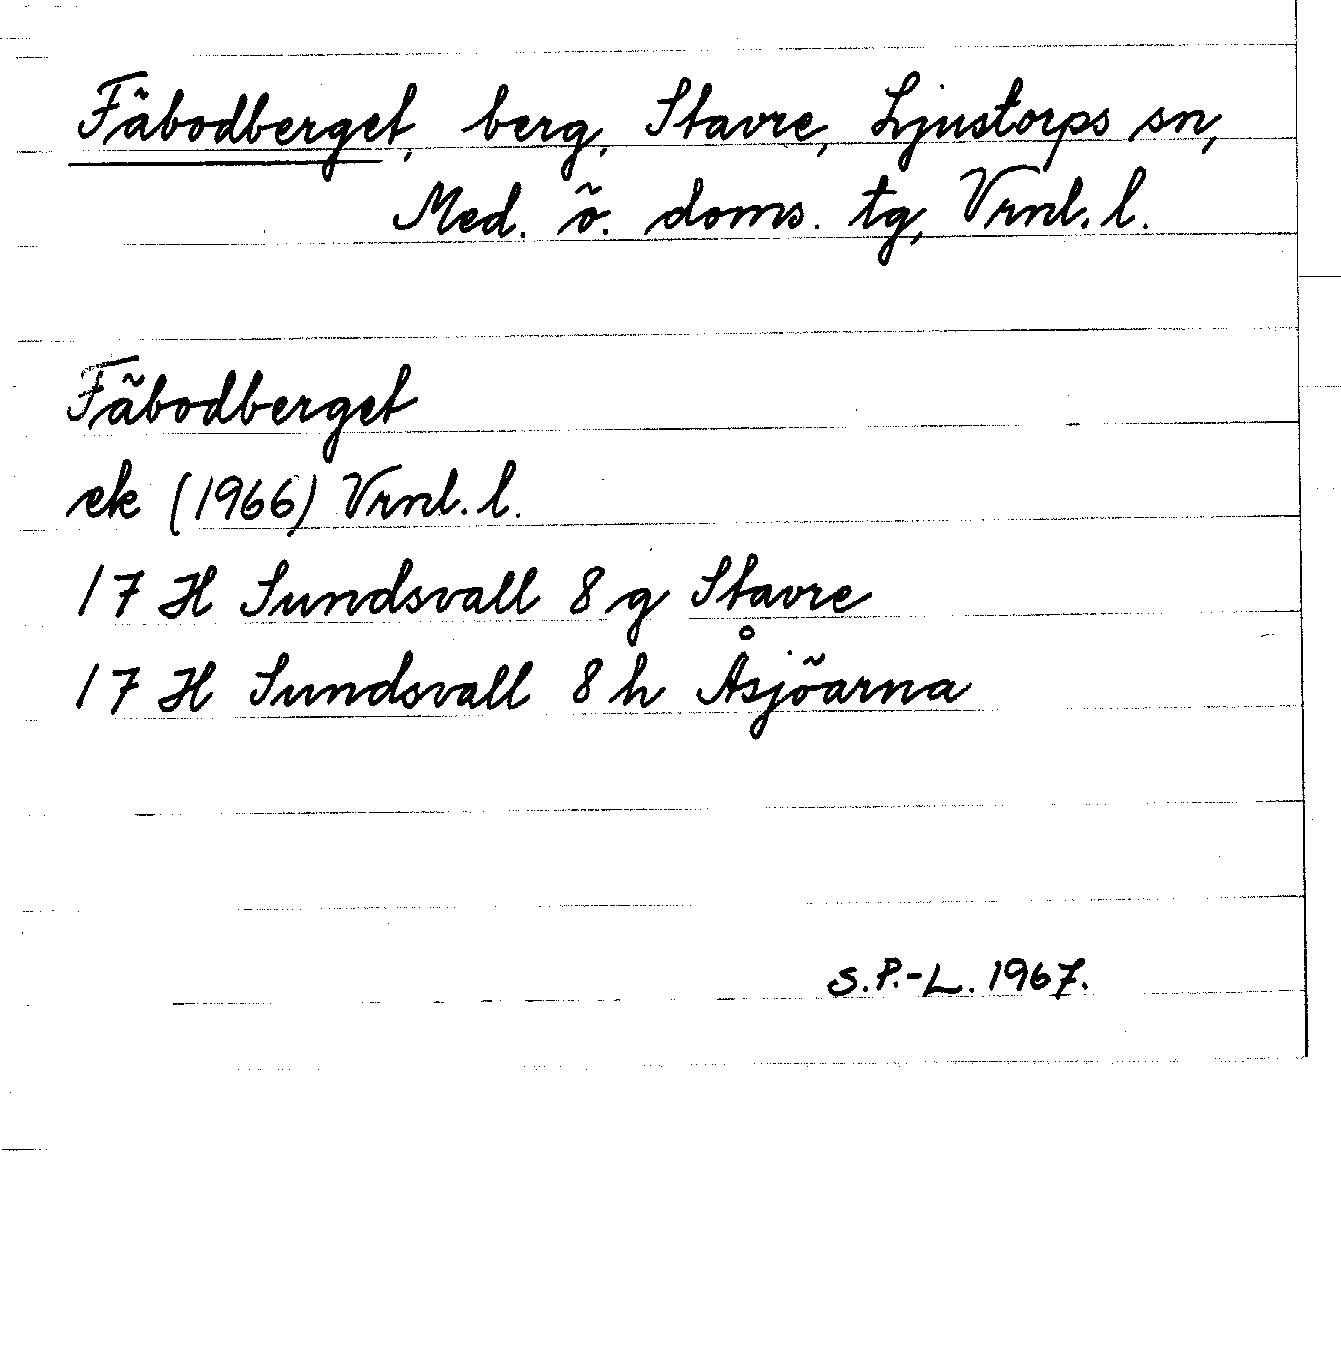 Fäbodberget, berg, Stavre, Ljustorps sn,
Med. ö. doms. tg, Vrnl. l.
Fäbodberget
ek (1966) Vrnl. l.
17 H Sundsvall 8 g Stavre
17 H Sundsvall 8 h Åsjöarna
S.P.-L. 1967.